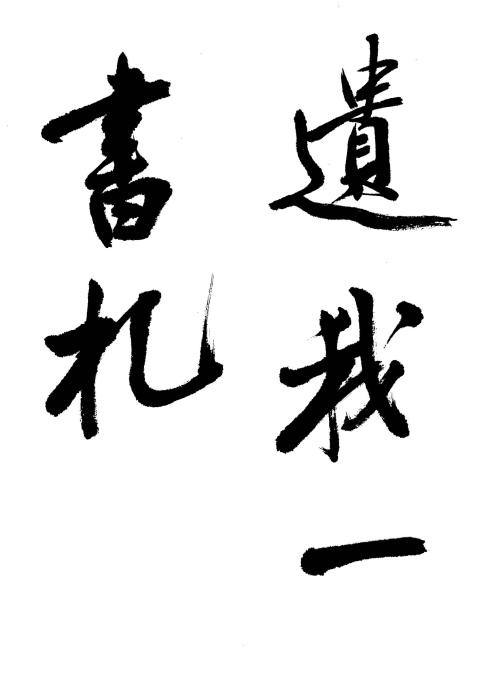 遺我一
書札